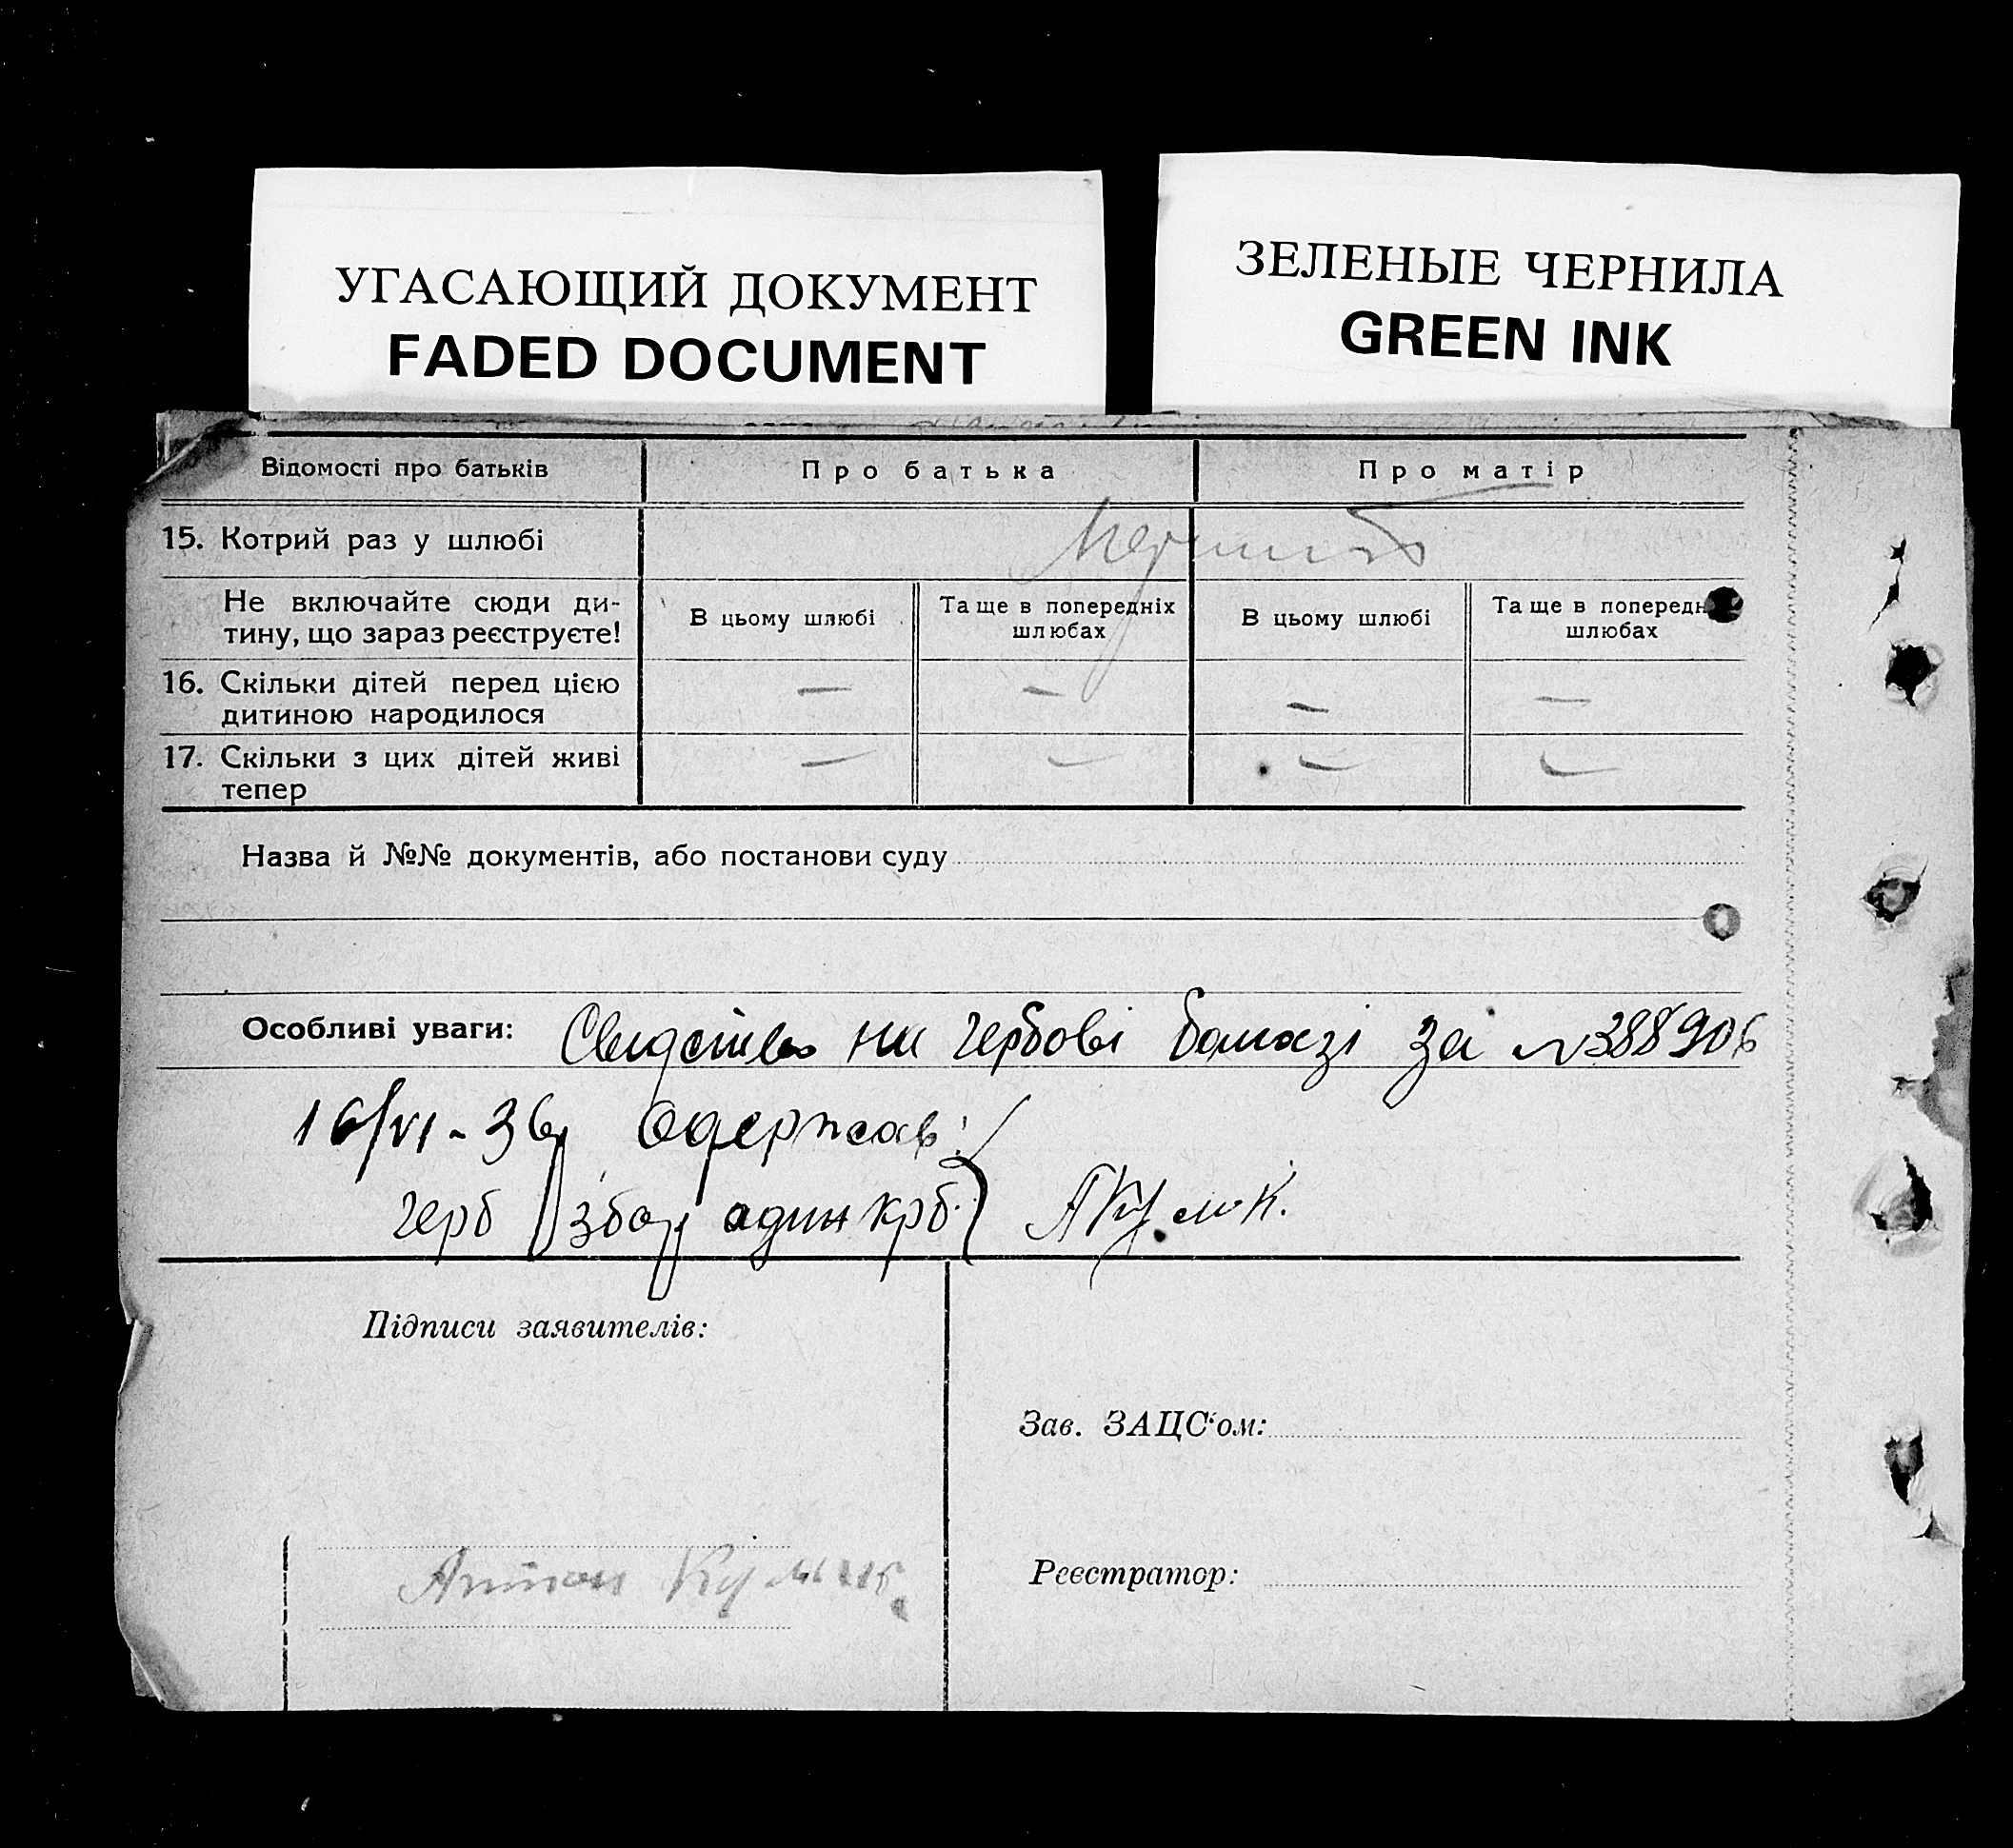 УГАСАЮЩИЙ ДОКУМЕНТ
FADED DOCUMENT
ЗЕЛЕНЫЕ ЧЕРНИЛА
GREEN INK
Відомості про батьків
Про батька
Про матір
15. Котрий раз у шлюбі
Не включайте сюди ди-
тину, що зараз реєструєте!
В цьому шлюбі
Та ще в попередніх
шлюбах
В цьому шлюбі
Та ще в попередн
шлюбах
16. Скільки дітей перед цією
дитиною народилося
— — — —
17. Скільки з цих дітей живі
тепер
— — — —
Назва й №№ документів, або постанови суду
Особливі уваги: Свидетво на гербові бомазі за №388906
16/VI-36 Одержав:
герб збор один крб.)
Підписи заявителів:
Зав. ЗАЦС‘ом:
Антон
Реєстратор: